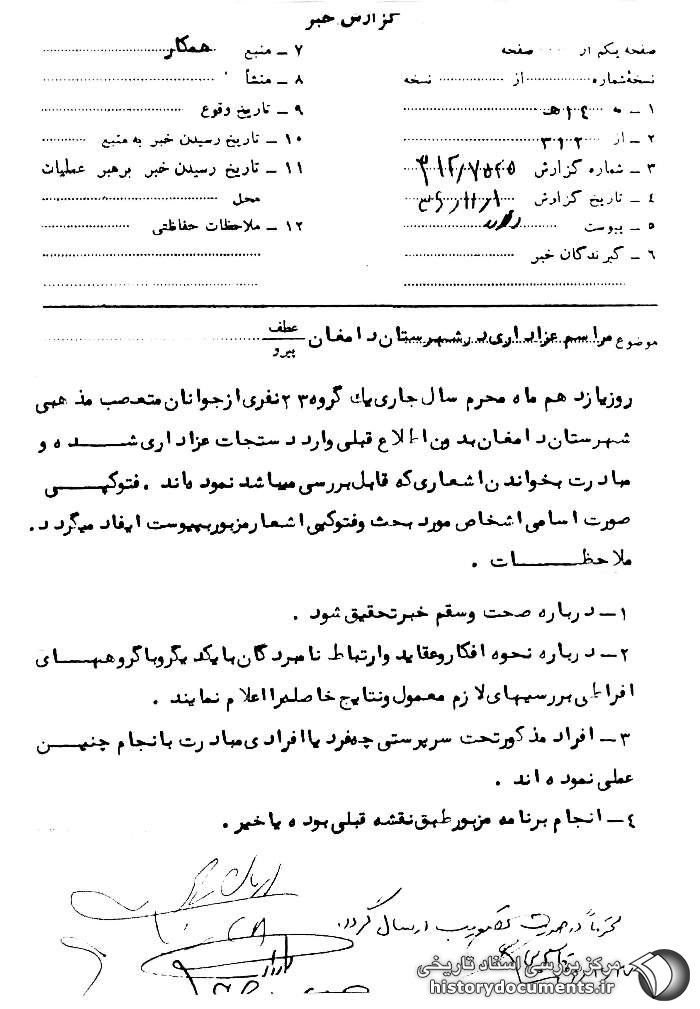 گزارش خبر
صفحه یکم از ........ صفحه
نسخهٔ شماره ........ از ........ نسخه
۱ ـ به ۱۴۰ هـ
۲ ـ از ۳۱۲
۳ ـ شماره گزارش
۴ ـ تاریخ گزارش
۵ ـ پیوست دارد
۶ ـ گیرندگان خبر
۷ ـ منبع همکار
۸ ـ منشأ
۹ ـ تاریخ وقوع
۱۰ ـ تاریخ رسیدن خبر به منبع
۱۱ ـ تاریخ رسیدن خبر برهبر عملیات
محل
۱۲ ـ ملاحظات حفاظتی
موضوع مراسم عزاداری در شهرستان دامغان عطف
پیرو
روز یازدهم ماه محرم سال جاری یک گروه ۲۳ نفری از جوانان متعصب مذهبی
شهرستان دامغان بدون اطلاع قبلی وارد دستجات عزاداری شده و
مبادرت بخواندن اشعاری که قابل بررسی میباشد نموده‌اند . فتوکپی
صورت اسامی اشخاص مورد بحث وفتوکپی اشعار مزبور بپیوست ایفاد میگردد .
ملاحظات .
۱ـ درباره صحت وسقم خبر تحقیق شود .
۲ـ درباره نحوه افکار وعقاید وارتباط نامبردگان با یکدیگر و با گروههای
افراطی بررسیهای لازم معمول ونتایج حاصله را اعلام نمایند .
۳ـ افراد مذکور تحت سرپرستی چه فرد یا افرادی مبادرت بانجام چنین
عملی نموده اند .
۴ـ انجام برنامه مزبور طبق نقشه قبلی بوده یا خیر .
محترماً در صورت تصویب ارسال گردد.
مرکز بررسی اسناد تاریخی
historydocuments.ir